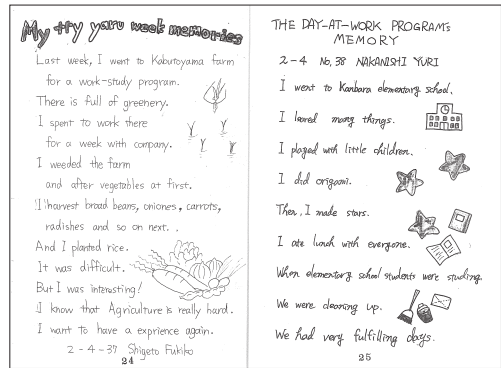 My try yaru week memories
Last week, I went to Kabutoyama farm
for a work-study program.
There is full of greenery.
I spent to work there
for a week with company.
I weeded the farm
and after vegetables at first.
I harvest broad beans, oniones, carrots,
radishes and so on next. .
And I planted rice.
It was difficult.
But I was interesting!
I know that Agriculture is really hard.
I want to have a exprience again.
2-4-37 Shigeto Fukiko
24
THE DAY-AT-WORK PROGRAM's
MEMORY
2-4 No, 38 NAKANISHI YURI
I went to Kanbara elementary school.
I leared many things.
I played with little children.
I did origami.
Then, I made stars.
I ate lunch with everyone.
When elementary school students were studing.
We were cleaning up.
We had very fulfilling days.
25